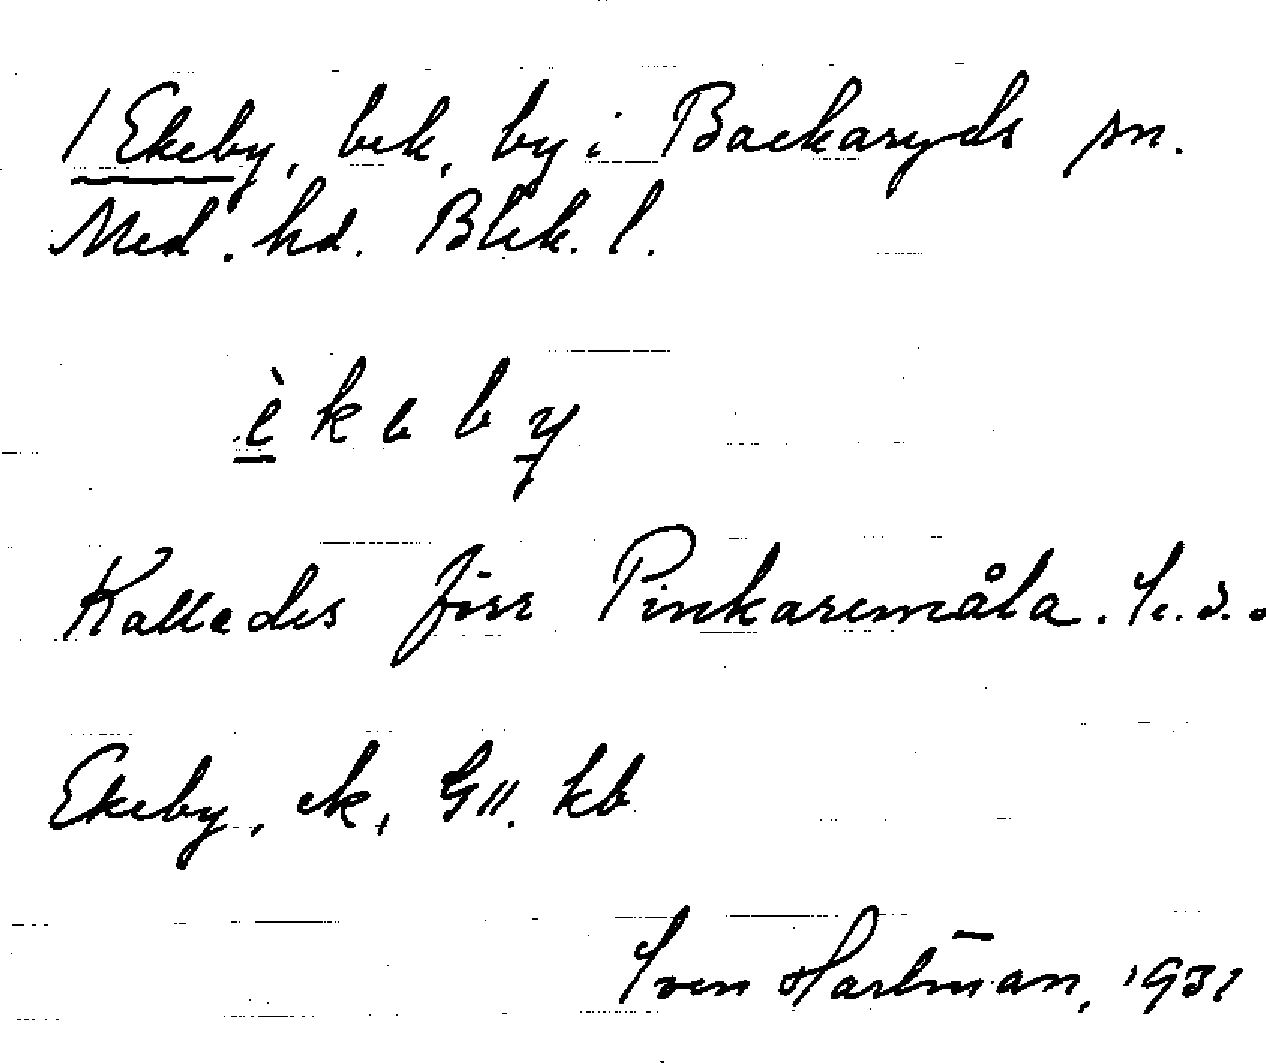 1 Ekeby, bek, by i Backaryds sn.
Med. hd. Blek. l.
èkeby
Kallades förr Pinkaremåla. S. d. o
Ekeby, ek, G11. kb
Sven Hartman, 1931